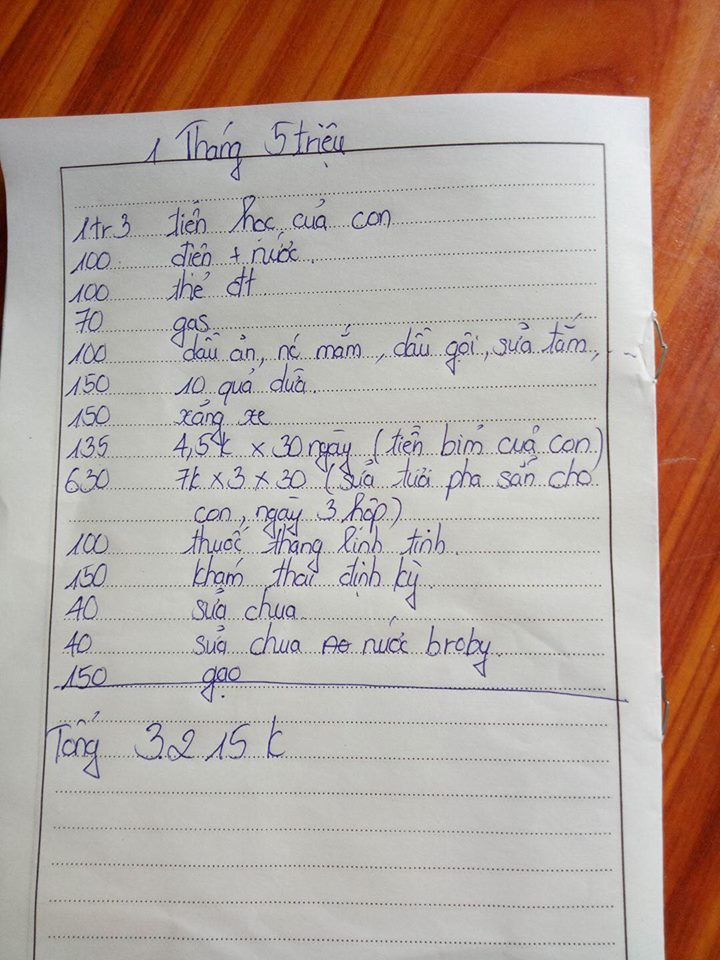 1 Tháng 5 triệu
1tr3 tiền học của con
100 điện + nước.
100 thẻ đt
70 gas
100 dầu ăn, nc mắm, dầu gội, sữa tắm, ...
150 10 quả dừa.
150 xăng xe
135 4,5k x 30 ngày (tiền bỉm của con)
630 7k x 3 x 30 (sữa tươi pha sẵn cho
con, ngày 3 hộp)
100 thuốc thang linh tinh.
150 khám thai định kỳ.
40 sữa chua.
40 sữa chua nước broby.
150 gạo
Tổng 3.215 k